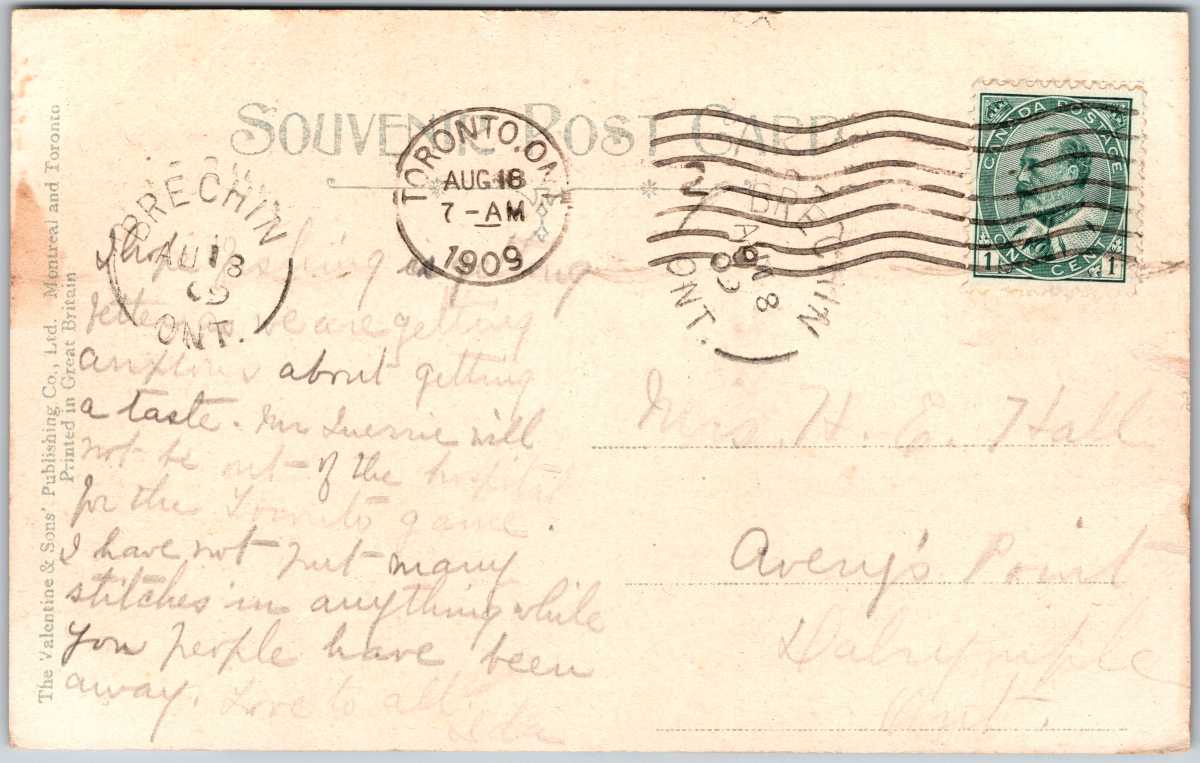 SOUVENIR POST CARD
The Valentine & Sons' Publishing Co., Ltd. Montreal and Toronto
Printed in Great Britain
TORONTO. ONT
AUG 18
7-AM
1909
BRECHIN
AU 18
09
ONT.
BRECHIN
AU 18
09
ONT.
CANADA POSTAGE
1 ONE CENT 1
I hope fishing is
letter as we are getting
anxious about getting
a taste. Mr will
not be out of the hospital
for the Toronto game.
I have not put many
stitches in anything while
you people have been
away. Love to all.
Ida
Mrs. H. E. Hall
Avery's Point
Dalrymple
Ont.